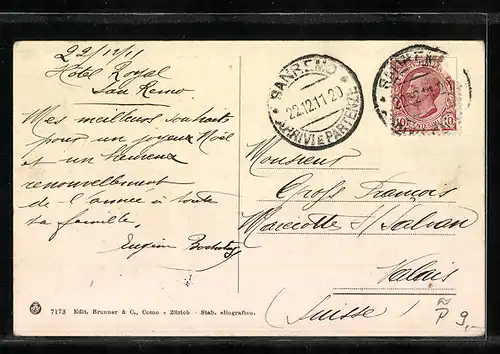 22/12/11
Hôtel Royal
San Remo
Mes meilleurs souhaits
pour un joyeux Noël
et un heureux
renouvellement
de l'année à toute
ta famille,
Eugène
SANREMO
22.12.11.20
ARRIVI E PARTENZE
SANREMO
10 CENTESIMI 10
Monsieur
Gross François
Marecottes s/ Salvan
Valais
(Suisse)
P 9,-
7173 Edit. Brunner & C., Como - Zürich - Stab. eliografico.